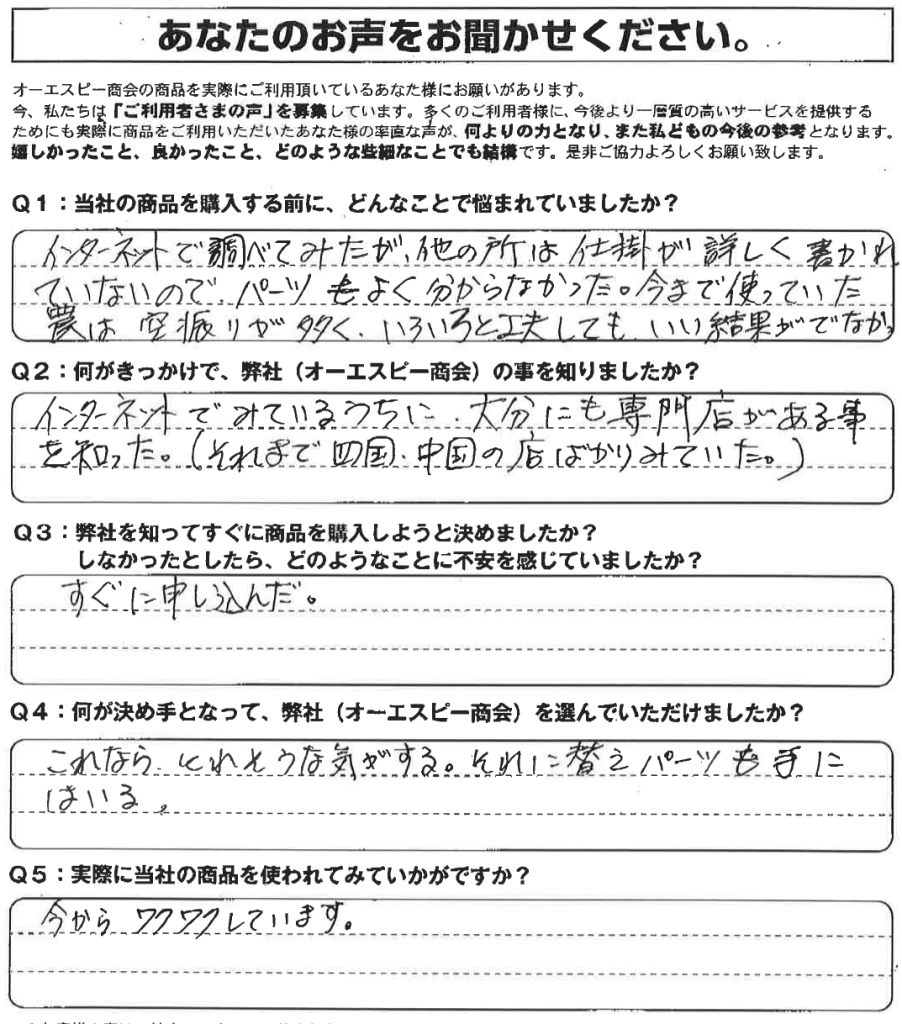 あなたのお声をお聞かせください。
オーエスピー商会の商品を実際にご利用頂いているあなた様にお願いがあります。
今、私たちは「ご利用者さまの声」を募集しています。多くのご利用者様に、今後より一層質の高いサービスを提供する
ためにも実際に商品をご利用いただいたあなた様の率直な声が、何よりの力となり、また私どもの今後の参考となります。
嬉しかったこと、良かったこと、どのような些細なことでも結構です。是非ご協力よろしくお願い致します。
Q1：当社の商品を購入する前に、どんなことで悩まれていましたか？
インターネットで調べてみたが、他の所は仕掛が詳しく書かれ
ていないので、パーツもよく分からなかった。今まで使っていた
罠は空振りが多く、いろいろと工夫しても、いい結果がでなかっ
Q2：何がきっかけで、弊社（オーエスピー商会）の事を知りましたか？
インターネットでみているうちに、大分にも専門店がある事
を知った。（それまで四国、中国の店ばかりみていた。）
Q3：弊社を知ってすぐに商品を購入しようと決めましたか？
しなかったとしたら、どのようなことに不安を感じていましたか？
すぐに申し込んだ。
Q4：何が決め手となって、弊社（オーエスピー商会）を選んでいただけましたか？
これなら、とれそうな気がする。それに替えパーツも手に
はいる。
Q5：実際に当社の商品を使われてみていかがですか？
今からワクワクしています。